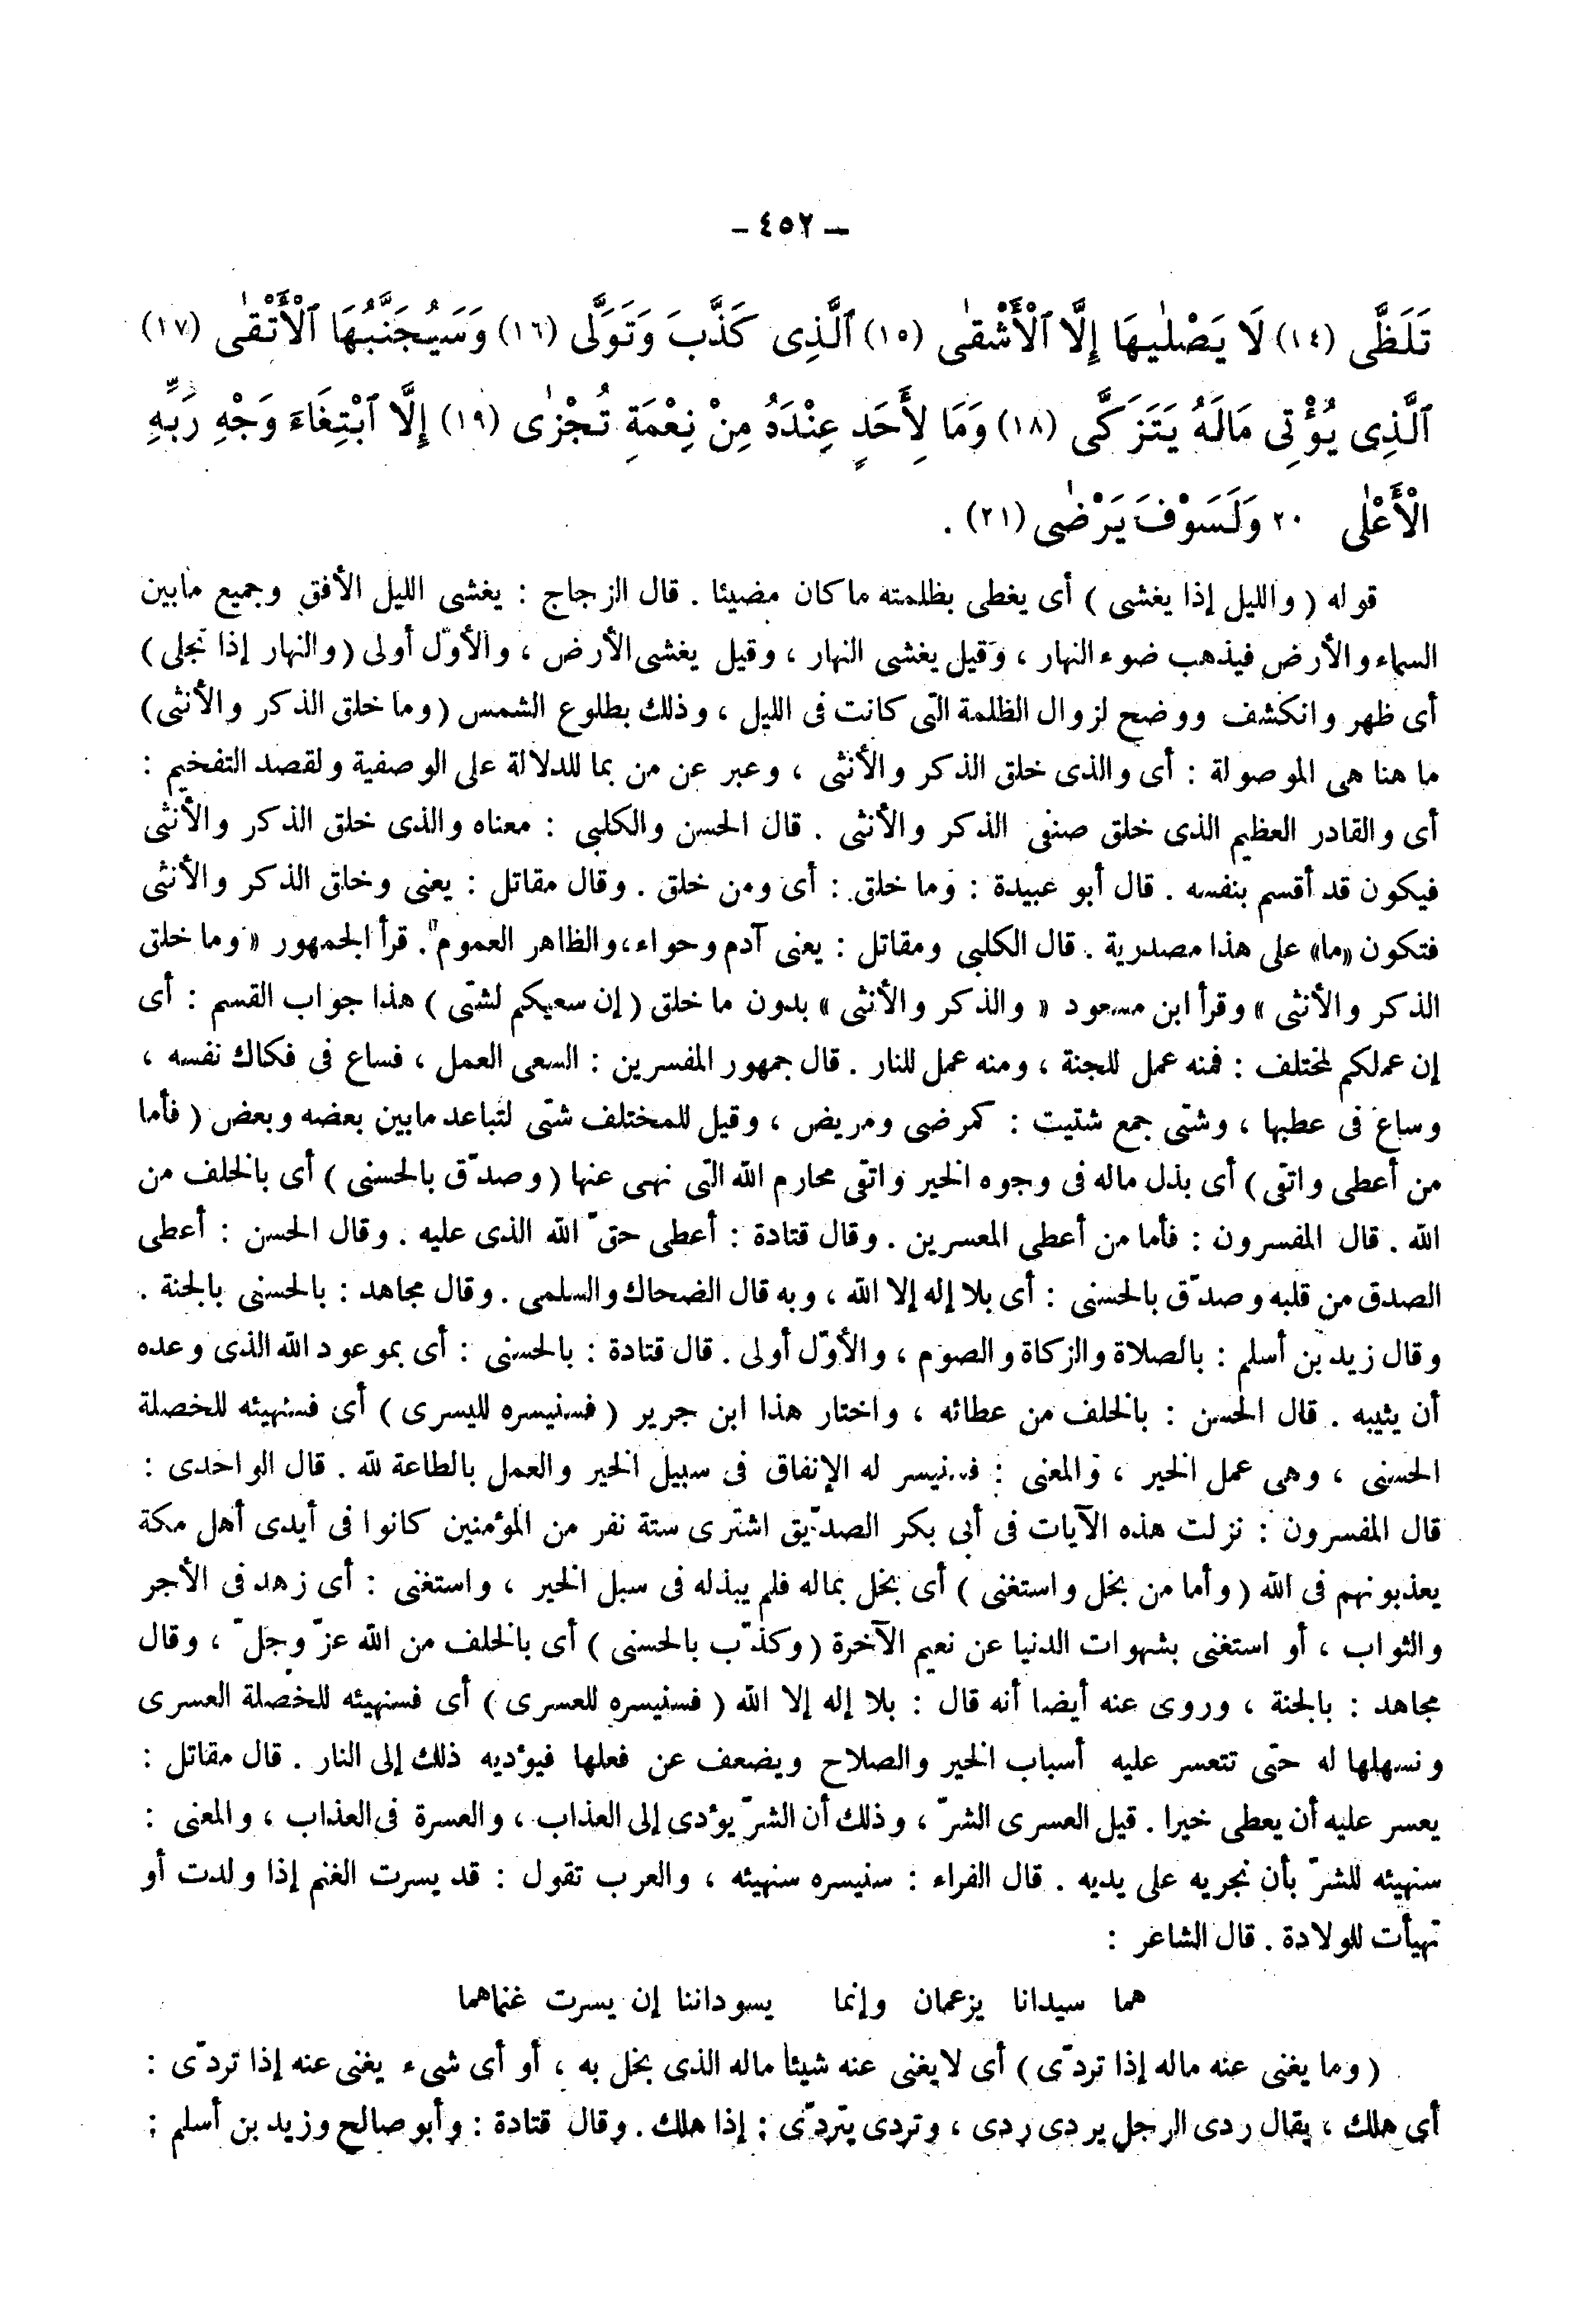 – ٤٥٢ –
تَلَظَّى (١٤) لَا يَصْلٰيهَا إِلَّا ٱلْأَشْقٰى (١٥) ٱلَّذِى كَذَّبَ وَتَوَلَّى (١٦) وَسَيُجَنَّبُهَا ٱلْأَتْقٰى (١٧)
ٱلَّذِى يُؤْتِى مَالَهُ يَتَزَكَّى (١٨) وَمَا لِأَحَدٍ عِنْدَهُ مِنْ نِعْمَةٍ تُجْزٰى (١٩) إِلَّا ٱبْتِغَاءَ وَجْهِ رَبِّهِ
الْأَعْلٰى ٢٠ وَلَسَوْفَ يَرْضٰى (٢١) .
قوله ( والليل إذا يغشى ) أى يغطى بظلمته ما كان مضيئا . قال الزجاج : يغشى الليل الأفق وجميع مابين
السماء والأرض فيذهب ضوء النهار ، وقيل يغشى النهار ، وقيل يغشى الأرض ، والأوّل أولى ( والنهار إذا تجلى )
أى ظهر وانكشف ووضح لزوال الظلمة التى كانت فى الليل ، وذلك بطلوع الشمس ( وما خلق الذكر والأنثى )
ما هنا هى الموصولة : أى والذى خلق الذكر والأنثى ، وعبر عن من بما للدلالة على الوصفية ولقصد التفخيم :
أى والقادر العظيم الذى خلق صنفى الذكر والأنثى . قال الحسن والكلبى : معناه والذى خلق الذكر والأنثى
فيكون قد أقسم بنفسه . قال أبو عبيدة : وما خلق : أى ومن خلق . وقال مقاتل : يعنى وخلق الذكر والأنثى
فتكون «ما» على هذا مصدرية . قال الكلبى ومقاتل : يعنى آدم وحواء ، والظاهر العموم . قرأ الجمهور « وما خلق
الذكر والأنثى » وقرأ ابن مسعود « والذكر والأنثى » بدون ما خلق ( إن سعيكم لشتى ) هذا جواب القسم : أى
إن عملكم لمختلف : فمنه عمل للجنة ، ومنه عمل للنار . قال جمهور المفسرين : السعى العمل ، فساع فى فكاك نفسه ،
وساع فى عطبها ، وشتى جمع شتيت : كمرضى ومريض ، وقيل للمختلف شتى لتباعد مابين بعضه وبعض ( فأما
من أعطى واتقى ) أى بذل ماله فى وجوه الخير واتقى محارم الله التى نهى عنها ( وصدّق بالحسنى ) أى بالخلف من
الله . قال المفسرون : فأما من أعطى المعسرين . وقال قتادة : أعطى حقّ الله الذى عليه . وقال الحسن : أعطى
الصدق من قلبه وصدّق بالحسنى : أى بلا إله إلا الله ، وبه قال الضحاك والسلمى . وقال مجاهد : بالحسنى بالجنة .
وقال زيد بن أسلم : بالصلاة والزكاة والصوم ، والأوّل أولى . قال قتادة : بالحسنى : أى بموعود الله الذى وعده
أن يثيبه . قال الحسن : بالخلف من عطائه ، واختار هذا ابن جرير ( فسنيسره لليسرى ) أى فسنهيئه للخصلة
الحسنى ، وهى عمل الخير ، والمعنى : فسنيسر له الإنفاق فى سبيل الخير والعمل بالطاعة لله . قال الواحدى :
قال المفسرون : نزلت هذه الآيات فى أبى بكر الصدّيق اشترى ستة نفر من المؤمنين كانوا فى أيدى أهل مكة
يعذبونهم فى الله ( وأما من بخل واستغنى ) أى بخل بماله فلم يبذله فى سبل الخير ، واستغنى : أى زهد فى الأجر
والثواب ، أو استغنى بشهوات الدنيا عن نعيم الآخرة ( وكذّب بالحسنى ) أى بالخلف من الله عزّ وجلّ ، وقال
مجاهد : بالجنة ، وروى عنه أيضا أنه قال : بلا إله إلا الله ( فسنيسره للعسرى ) أى فسنهيئه للخصلة العسرى
ونسهلها له حتى تتعسر عليه أسباب الخير والصلاح ويضعف عن فعلها فيؤديه ذلك إلى النار . قال مقاتل :
يعسر عليه أن يعطى خيرا . قيل العسرى الشرّ ، وذلك أن الشرّ يؤدى إلى العذاب ، والعسرة فى العذاب ، والمعنى :
سنهيئه للشرّ بأن نجريه على يديه . قال الفراء : سنيسره سنهيئه ، والعرب تقول : قد يسرت الغنم إذا ولدت أو
تهيأت للولادة . قال الشاعر :
هما سيدانا يزعمان وإنما يسوداننا إن يسرت غنماهما
( وما يغنى عنه ماله إذا تردّى ) أى لا يغنى عنه شيئا ماله الذى بخل به ، أو أى شىء يغنى عنه إذا تردّى :
أى هلك ، يقال ردى الرجل يردى ردى ، وتردى يتردّى ; إذا هلك . وقال قتادة : وأبو صالح وزيد بن أسلم ;